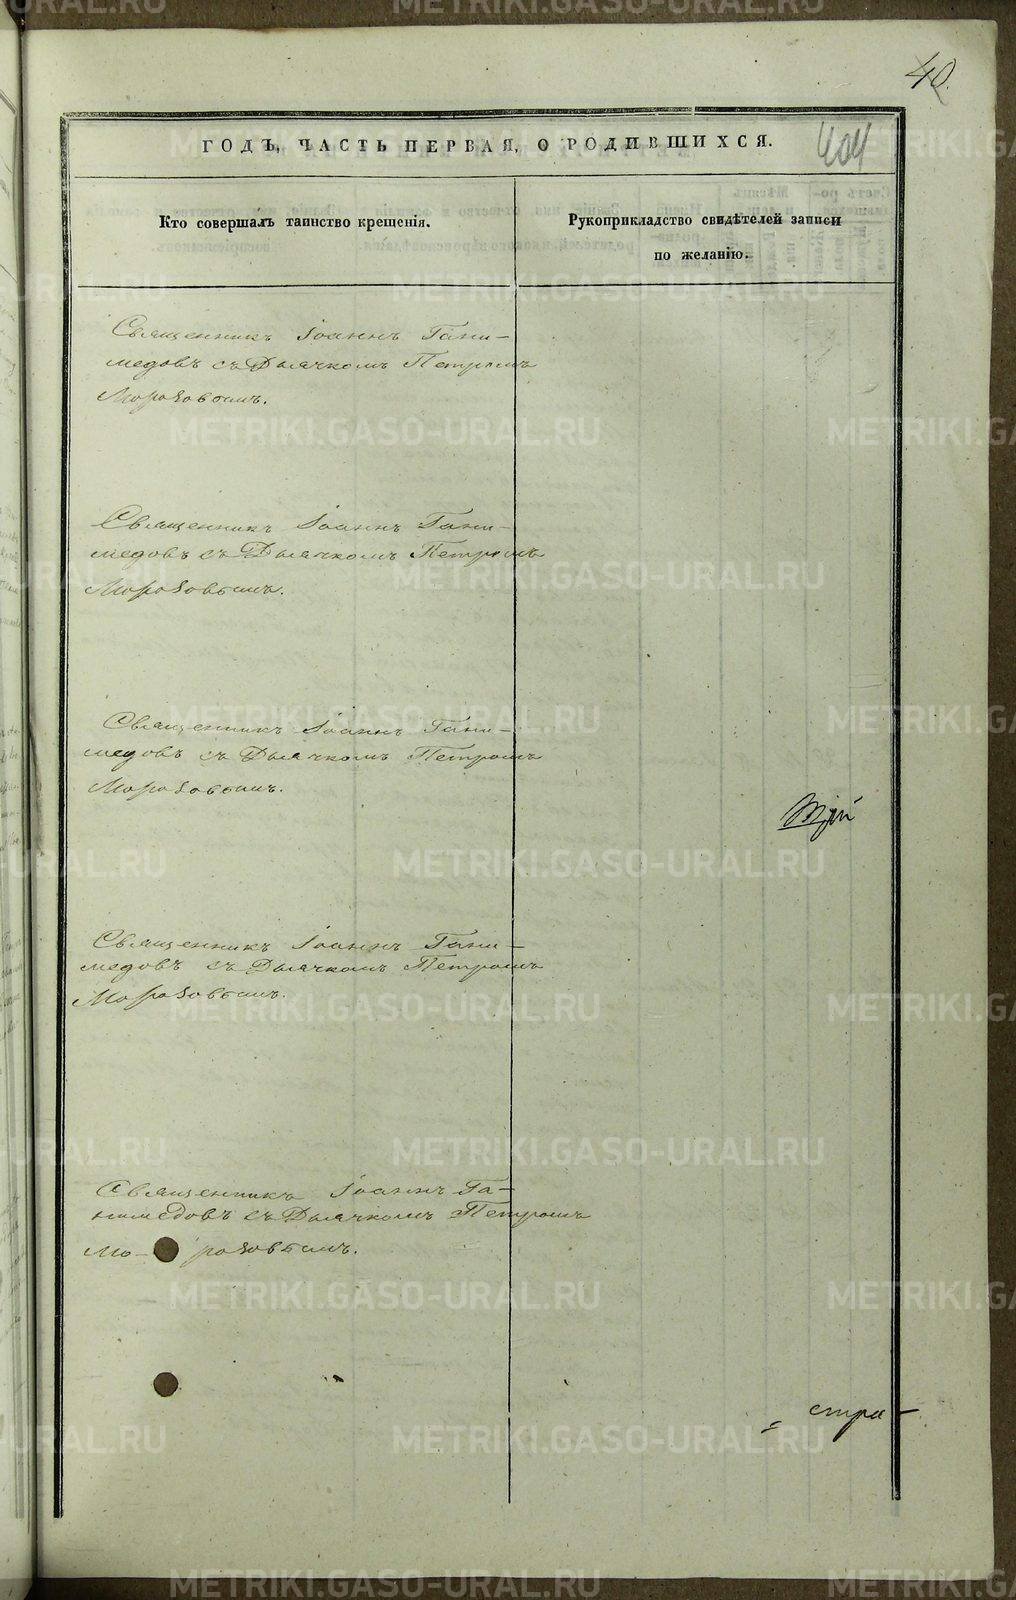 40.
ГОДЪ, ЧАСТЬ ПЕРВАЯ, О РОДИВШИХСЯ.
404
Кто совершалъ таинство крещенія.
Рукоприкладство свидѣтелей записи
по желанію.
Священникъ Іоаннъ Гани-
медовъ съ Дьячкомъ Петромъ
Морозовымъ.
Священникъ Іоаннъ Гани-
медовъ съ Дьячкомъ Петромъ
Морозовымъ.
Священникъ Іоаннъ Гани-
медовъ съ Дьячкомъ Петромъ
Морозовымъ.
Священникъ Іоаннъ Гани-
медовъ съ Дьячкомъ Петромъ
Морозовымъ.
Священникъ Іоаннъ Га-
нимедовъ съ Дьячкомъ Петромъ
Мо- розовымъ.
стра-
METRIKI.GASO-URAL.RU